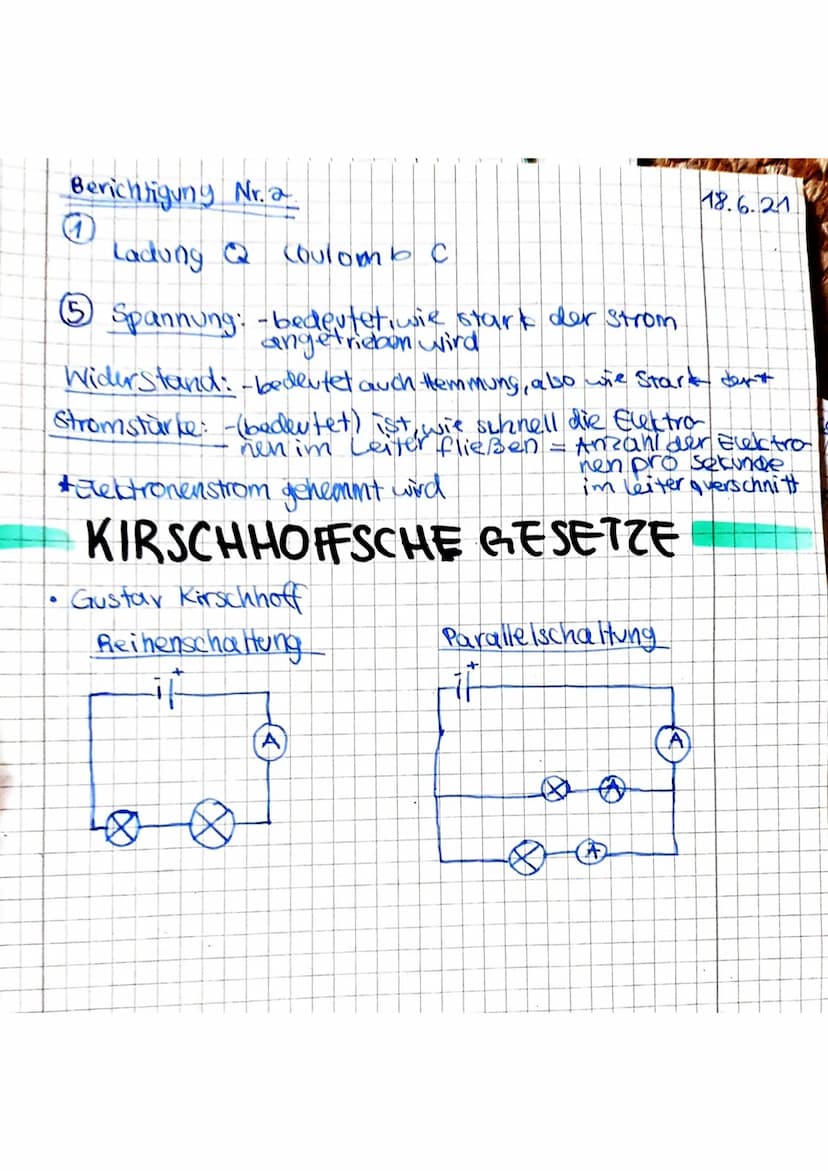 Berichtigung Nr. 2
18.6.21
①
Ladung Q Coulomb C
⑤ Spannung: - bedeutet, wie stark der Strom
angetrieben wird
Widerstand: - bedeutet auch Hemmung, also wie stark der *
Stromstärke: - (bedeutet) ist, wie schnell die Elektro-
nen im Leiter fließen = Anzahl der Elektro-
nen pro Sekunde
* Elektronenstrom gehemmt wird
im Leiterquerschnitt
KIRSCHHOFFSCHE GESETZE
• Gustav Kirschhoff
Reihenschaltung
Parallelschaltung
+
+
A
A
A
A